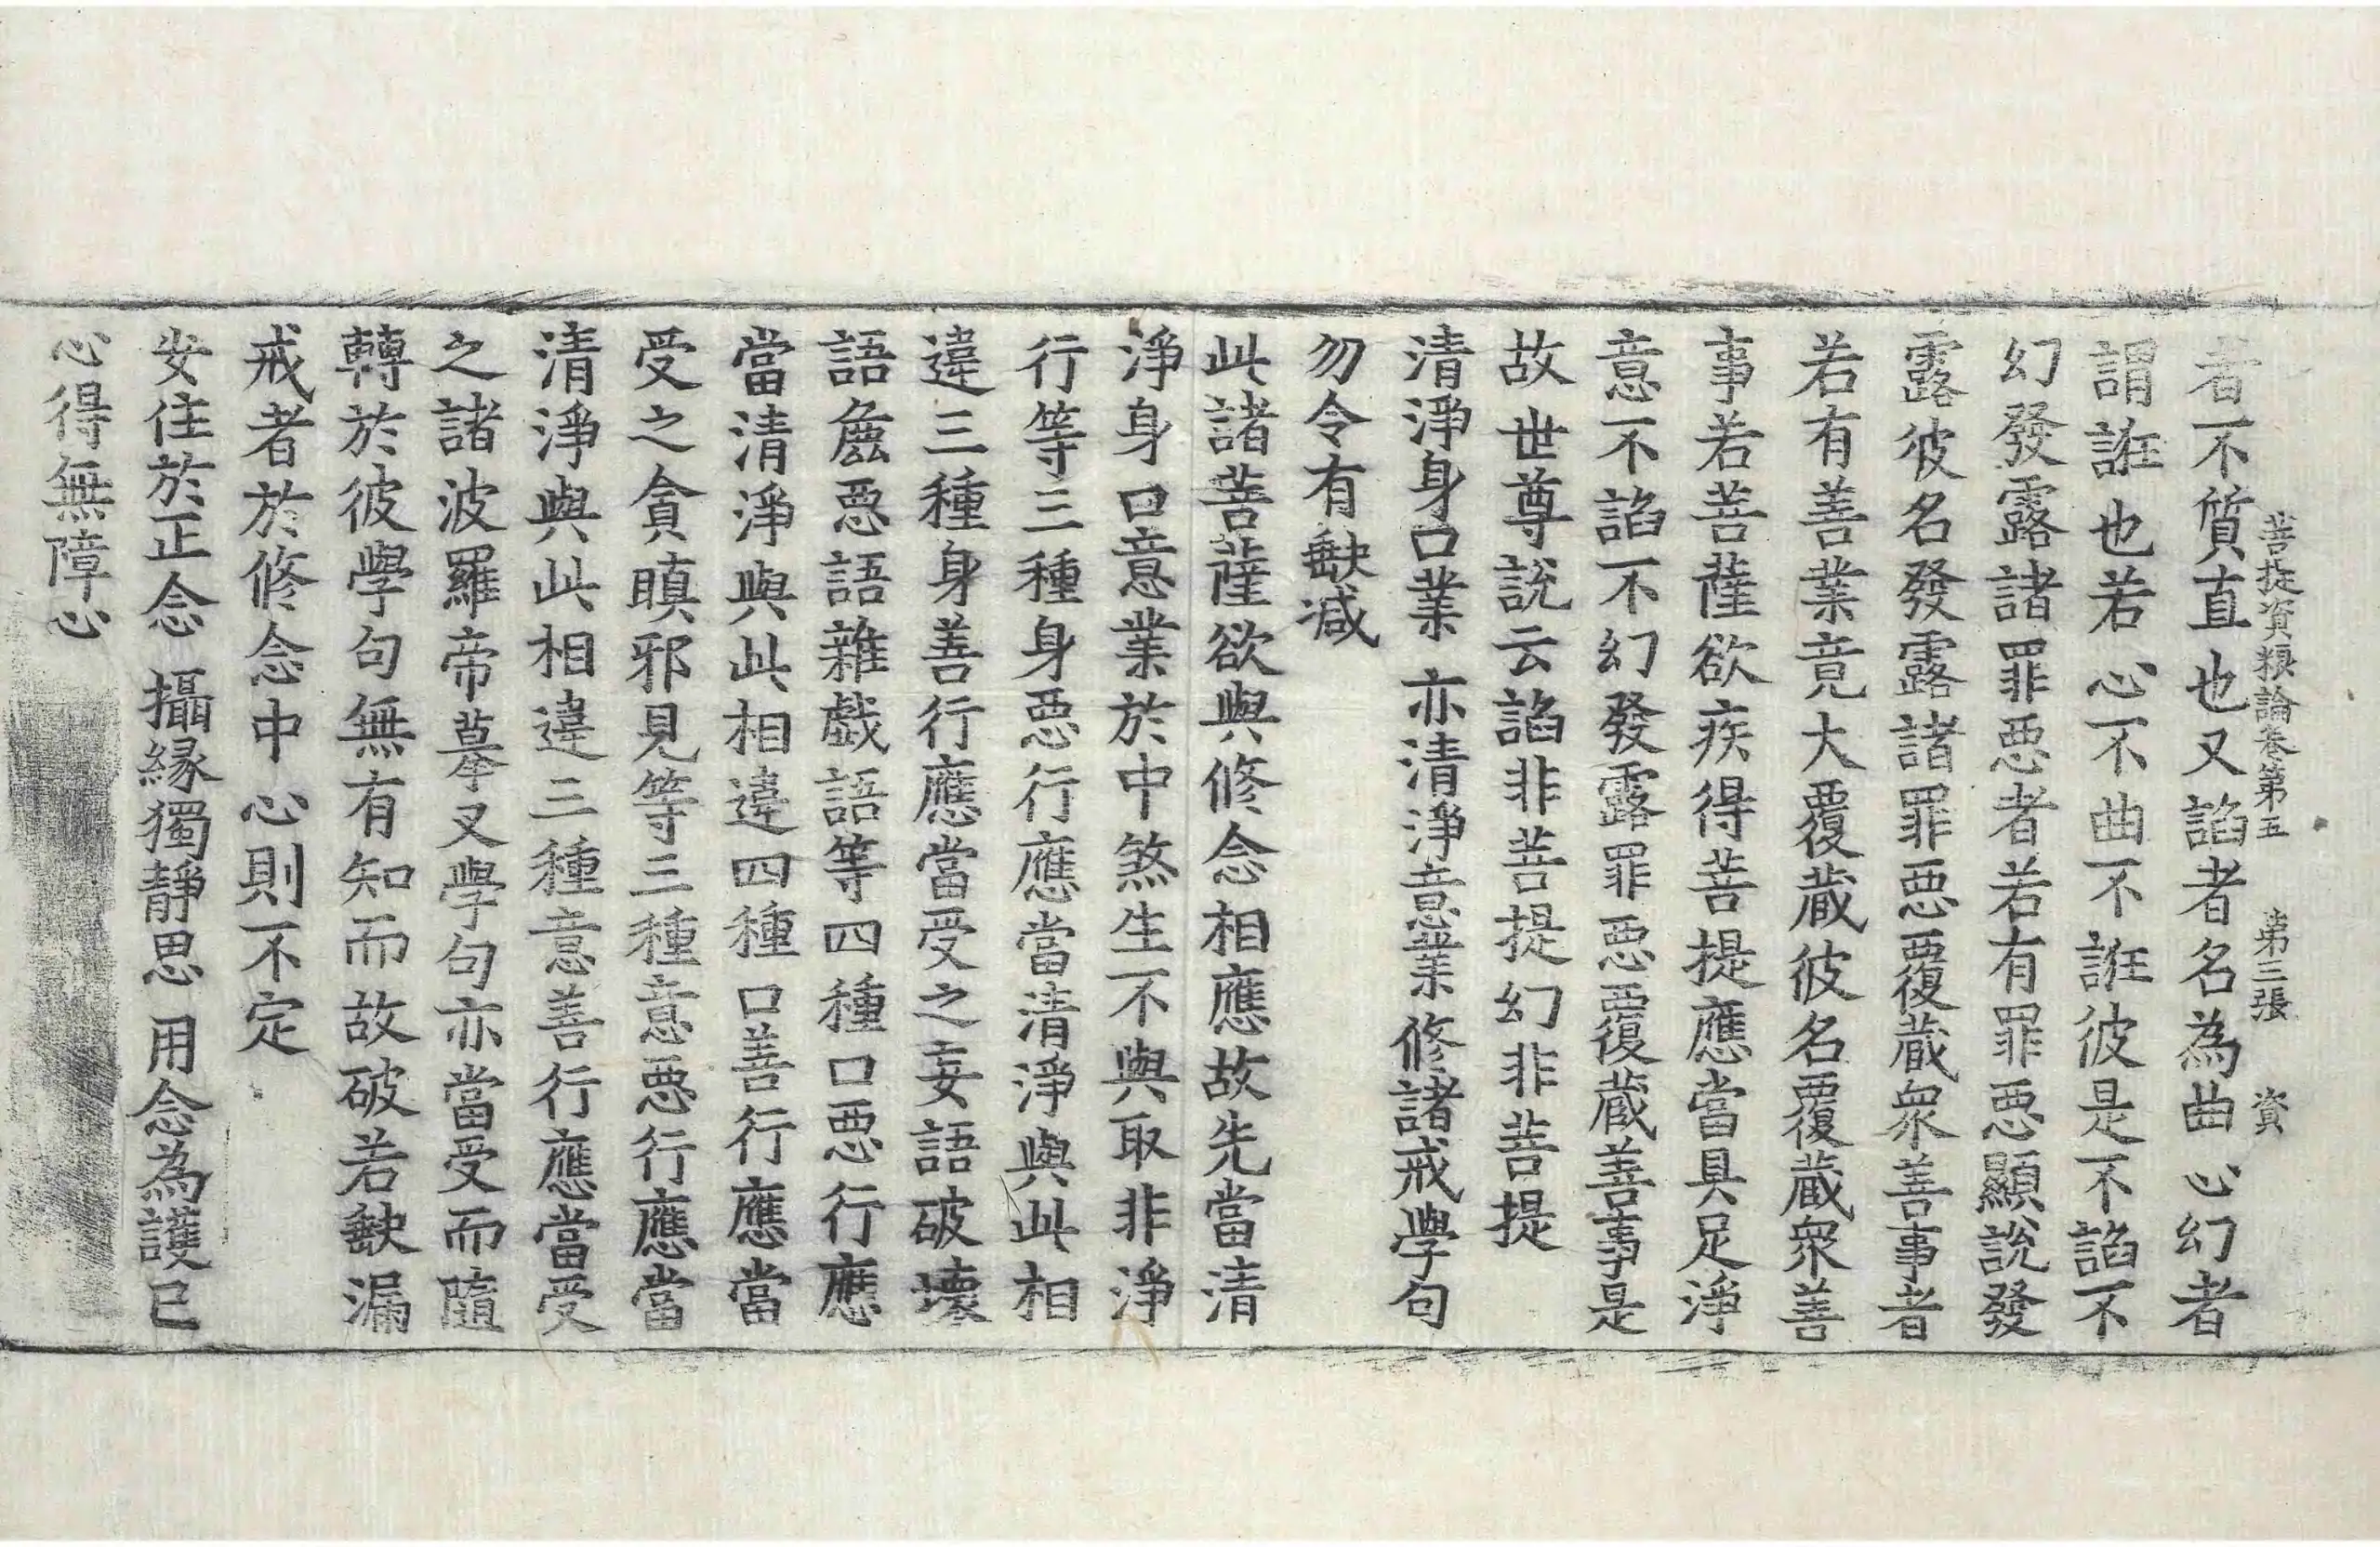 菩提資粮論卷第五　第三張　資
者不質直也又諂者名為曲心幻者
謂誑也若心不曲不誑彼是不諂不
幻發露諸罪惡者若有罪惡顯說發
露彼名發露諸罪惡覆蔵衆善事者
若有善業竟大覆蔵彼名覆蔵衆善
事若菩薩欲疾得菩提應當具足淨
意不諂不幻發露罪惡覆蔵善事是
故世尊說云諂非菩提幻非菩提
清淨身口業　亦清淨意業　修諸戒學句
勿令有缺減
此諸菩薩欲與修念相應故先當清
淨身口意業於中煞生不與取非淨
行等三種身惡行應當清淨與此相
違三種身善行應當受之妄語破壞
語麁惡語雜戲語等四種口惡行應
當清淨與此相違四種口善行應當
受之貪瞋邪見等三種意惡行應當
清淨與此相違三種意善行應當受
之諸波羅帝摹叉學句亦當受而隨
轉於彼學句無有知而故破若缺漏
戒者於修念中心則不定
安住於正念　攝縁獨靜思　用念為護已
心得無障心